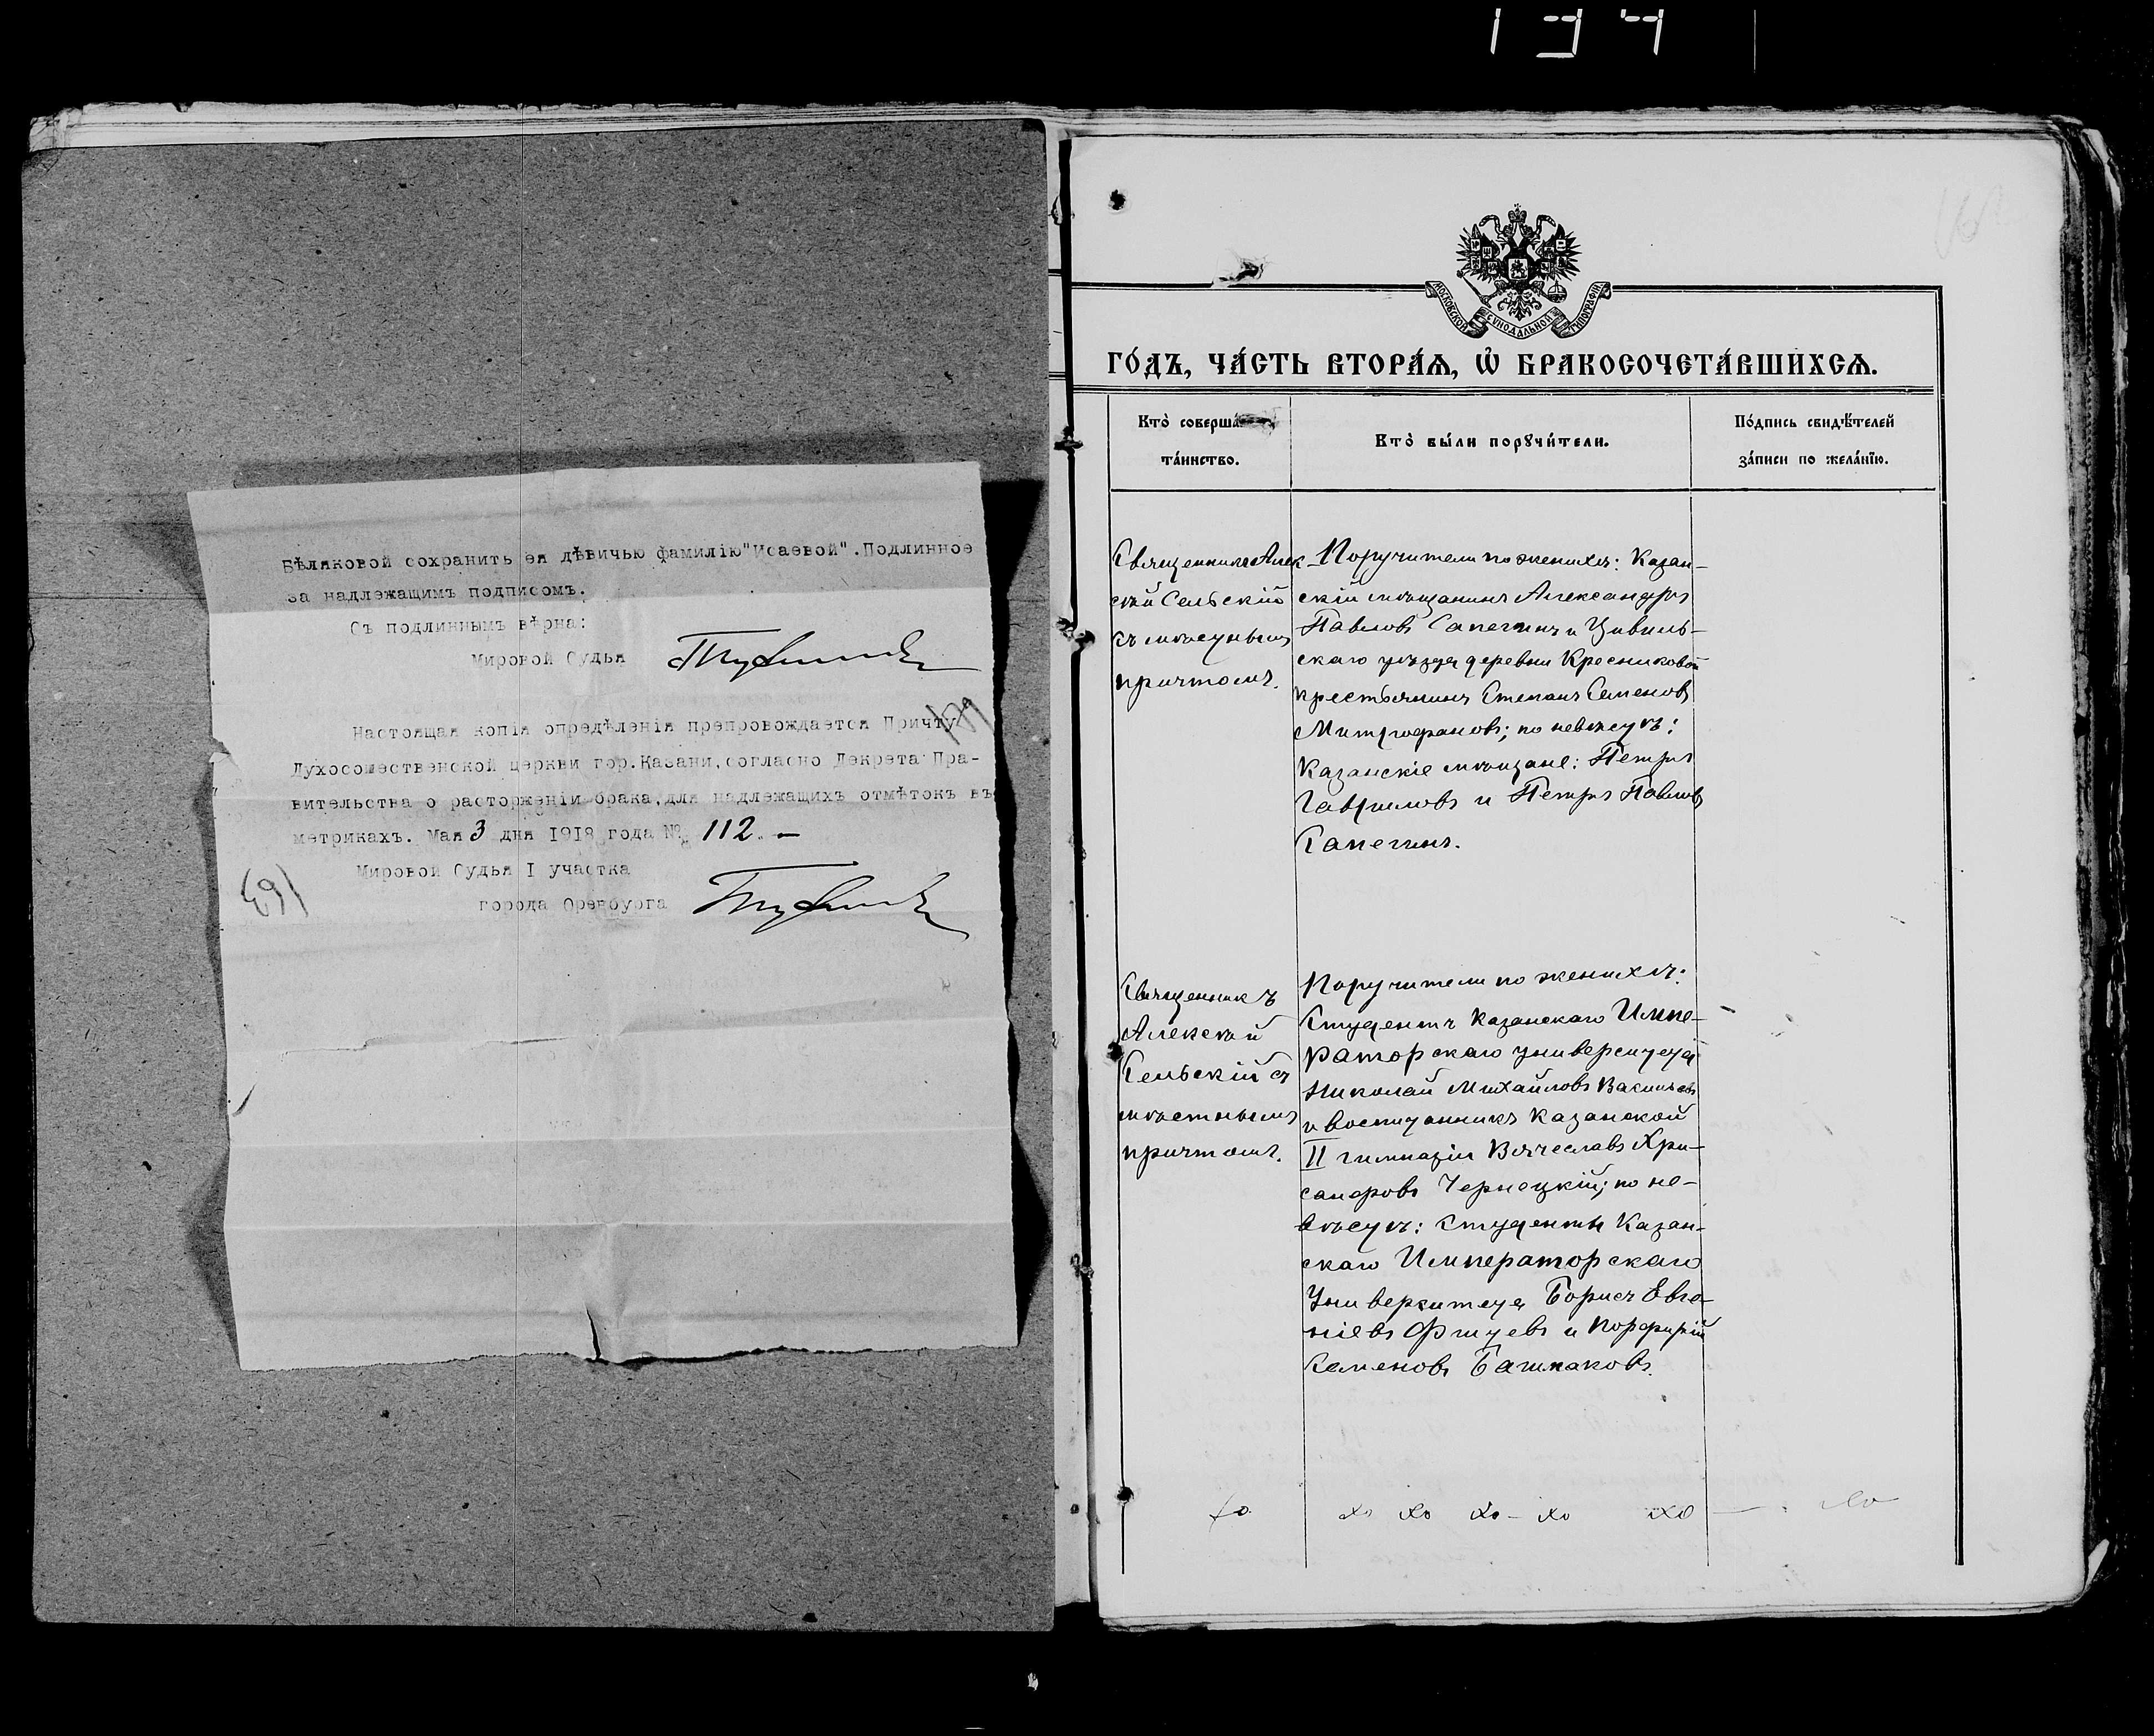 134
Бѣляковой сохранить ея дѣвичью фамилію "Исаевой". Подлинное
за надлежащимъ подписомъ.
Съ подлиннымъ вѣрна:
Мировой Судья
Настоящая копія опредѣленія препровождается Причту
Духосошественской церкви гор. Казани, согласно Декрета Пра-
вительства о расторженіи брака, для надлежащихъ отмѣтокъ въ
метрикахъ. Мая 3 дня 1918 года № 112. —
Мировой Судья I участка
города Оренбурга
163
МОСКОВСКОЙ СѴНОДАЛЬНОЙ ТИПОГРАФІИ
ГО́ДЪ, ЧА́СТЬ ВТОРА́Ѧ, Ѽ БРАКОСОЧЕТА́ВШИХСѦ.
Кто̀ соверша́
та́инство.
Кто̀ бы́ли порꙋчи́тели.
По́дпись свидѣ́телей
за́писи по жела́нїю.
Священникъ Алек-
сѣй Сельскій
съ мѣстнымъ
причтомъ.
Поручители по женихѣ: Казан-
скій мѣщанинъ Александръ
Павловъ Сапегинъ и Цивиль-
скаго уѣзда деревни Кресниковой
крестьянинъ Степанъ Семеновъ
Митрофановъ; по невѣстѣ:
Казанскіе мѣщане: Петръ
Гавриловъ и Петръ Павловъ
Сапегинъ.
Священникъ
Алексѣй
Сельскій съ
мѣстнымъ
причтомъ.
Поручители по женихѣ:
Студентъ Казанскаго Импе-
раторскаго университета
Николай Михайловъ Васильевъ
и воспитанникъ Казанской
II гимназіи Вячеславъ Хри-
санфовъ Чернецкій; по не-
вѣстѣ: Студенты Казан-
скаго Императорскаго
Университета Борисъ Евге-
ніевъ Фигуевъ и Порфирій
Семеновъ Башмаковъ.